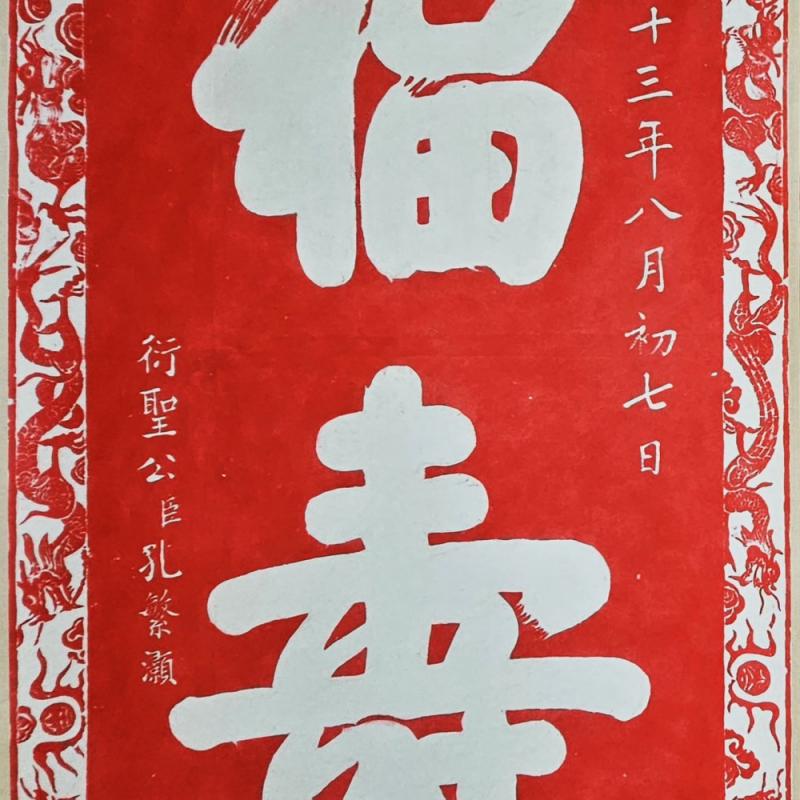 十三年八月初七日
福壽
衍聖公臣孔繁灝